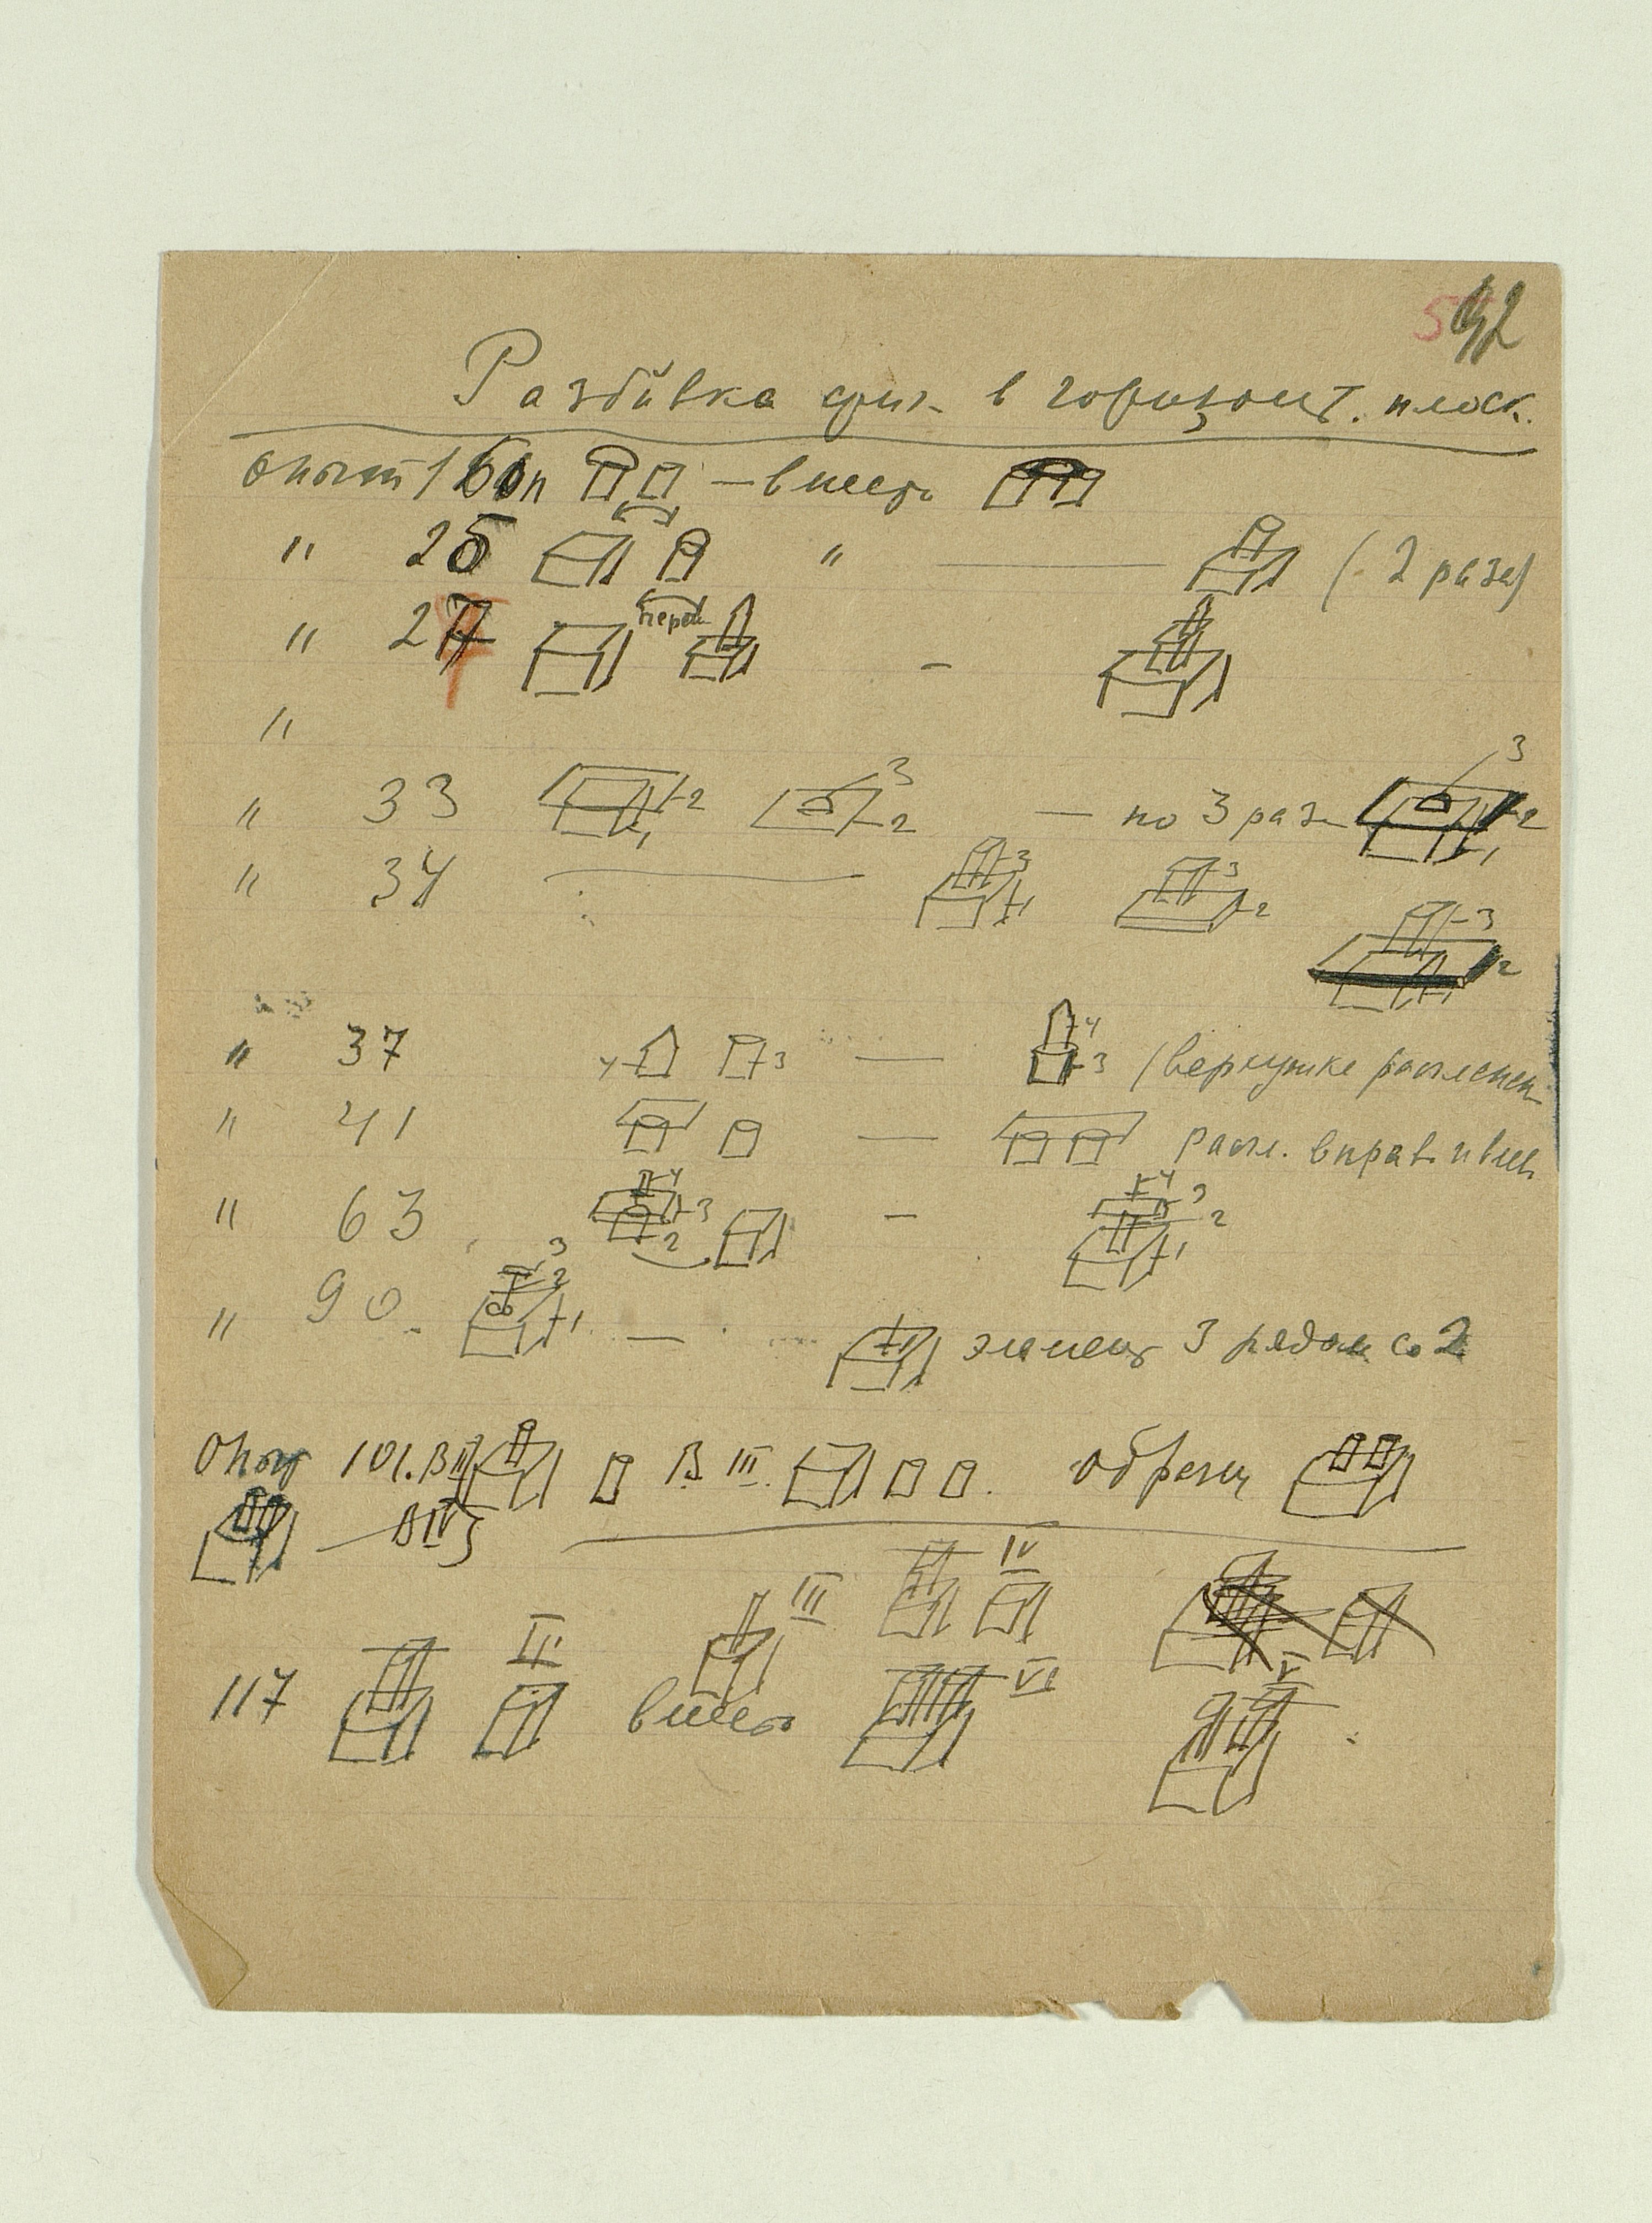 92
Разбивка фиг. в горизонт. плоск.
опыт 16 — вмест
" 25 " — (2 раза)
" 27 —
"
" 33 2 1 3 2 — по 3 раз 3 2 1
" 34 — 3 1 3 2 3 2 1
" 37 4 3 — 4 3 (верхушке
" 41 — вправ. и влев.
" 63 4 3 2 — 4 3 2 1
" 90. 3 2 1 — элемент 3 рядом со 2
Опыт 101. В II В. III. образец
— В IV
III IV
117 II вместо VI V